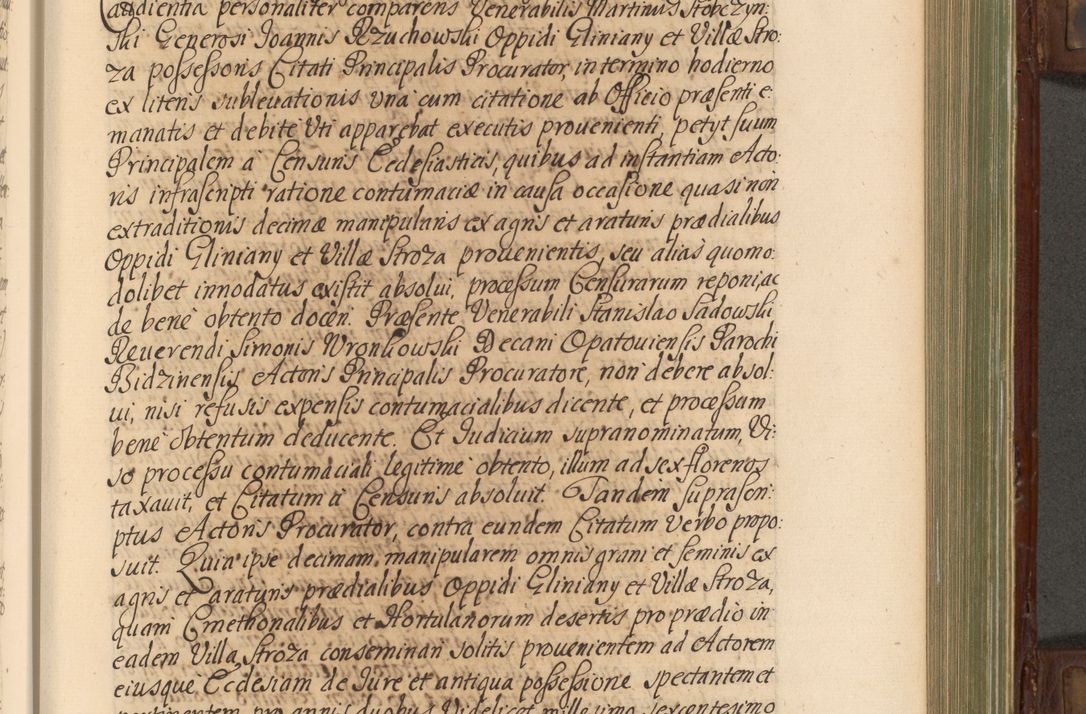 audientia personaliter comparens Venerabilis Martinus Stobczyn:
ski Generosi Joannis Rzuchowski Oppidi Gliniany et Villæ Stro:
za possessoris Citati Principalis Procurator, in termino hodierno
ex literis subleuationis una cum citatione ab Officio præsenti e:
manatis et debite Vti apparebat executis prouenienti, petyt suum
Principalem a Censuris Ecclesiasticis, quibus ad instantiam Acto:
ris infrascripti ratione contumaciæ in causa occasione quasi non
extraditionis decimæ manipularis ex agris et araturis prædialibus
Oppidi Gliniany et Villæ Stroza prouenientis, seu alias quomo:
dolibet innodatus existit absolui, processum Censurarum reponi, ac
de bene obtento doceri. Præsente Venerabili Stanislao Sadowski
Reuerendi Simonis Wronkowski Decani Opatouiensis Parochi
Bidzinensis Actoris Principalis Procuratore, non debere absol:
ui, nisi refusis expensis contumacialibus dicente, et processum
bene obtentum deducente. Et Judicium supranominatum, Vi:
so processu contumaciali legitime obtento, illum ad sex florenos
taxauit, et Citatum a Censuris absoluit. Tandem suprascri:
ptus Actoris Procurator, contra eundem Citatum verbo propo:
suit. Quia ipse decimam manipularem omnis grani et seminis ex
agris et araturis prædialibus Oppidi Gliniany et Villæ Stroza,
quam Cmethonalibus et Hortulanorum desertis pro prædio in
eadem Villa Stroza conseminari solitis prouenientem ad Actorem
eiusque Ecclesiam de Jure et antiqua possessione spectantem et
pertinentem pro annis duobus Videlicet millesimo sexcentesimo